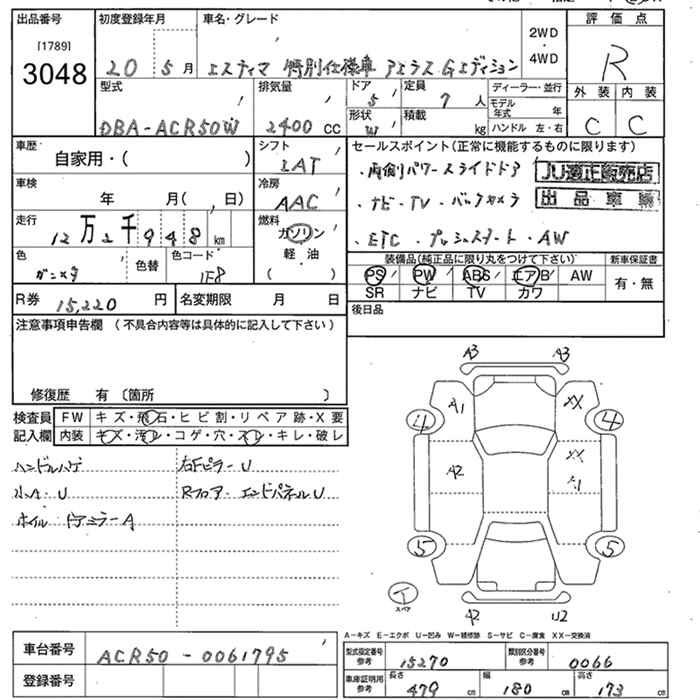 出品番号 初度登録年月 車名・グレード 2WD・4WD 評価点
[1789]
3048 20 5月 エスティマ 特別仕様車 アエラス Gエディション R
型式 排気量 ドア 5 定員 7人 ディーラー・並行 外装 内装
DBA-ACR50W 2400cc 形状 W 積載 kg モデル年式 年 ハンドル 左・右 C C
車歴 自家用・( ) シフト IAT セールスポイント(正常に機能するものに限ります)
・両側パワースライドドア JU適正販売店
車検 年 月( , 日) 冷房 AAC ・ナビ・TV・バックカメラ 出品車輌
走行 12万2千948km 燃料 ガソリン 軽油 ( ) ・ETC・プッシュスタート・AW
色 ガンメタ 色替 色コード 1F8
装備品(純正品に限り丸をつけて下さい) 新車保証書
PS PW ABS エアB AW 有・無
SR ナビ TV カワ
R券 15,220円 名変期限 月 日 後日品
注意事項申告欄(不具合内容等は具体的に記入して下さい)
修復歴 有 〔箇所 〕
検査員 FW キズ・飛石・ヒビ割・リペア跡・X要
記入欄 内装 キズ・汚レ・コゲ・穴・スレ・キレ・破レ
ハンドルハゲ 右Fピラー U
小A・U Rフロアー エンドパネル U
ホイル ドアミラーA
A3 A3
A1 XX
4 4
A2 XX
A1
5 5
T
スペア
A2 U2
A-キズ E-エクボ U-凹み W-補修跡 S-サビ C-腐食 XX-交換済
車台番号 ACR50-0061795
登録番号
型式指定番号 参考 15270 類別区分番号 参考 0066
車庫証明用 参考 長さ 479cm 幅 180cm 高さ 173cm